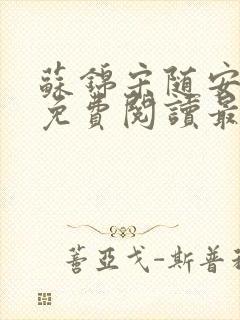 蘇錦宋随安
免費閱讀最
蓍亞戈-斯普